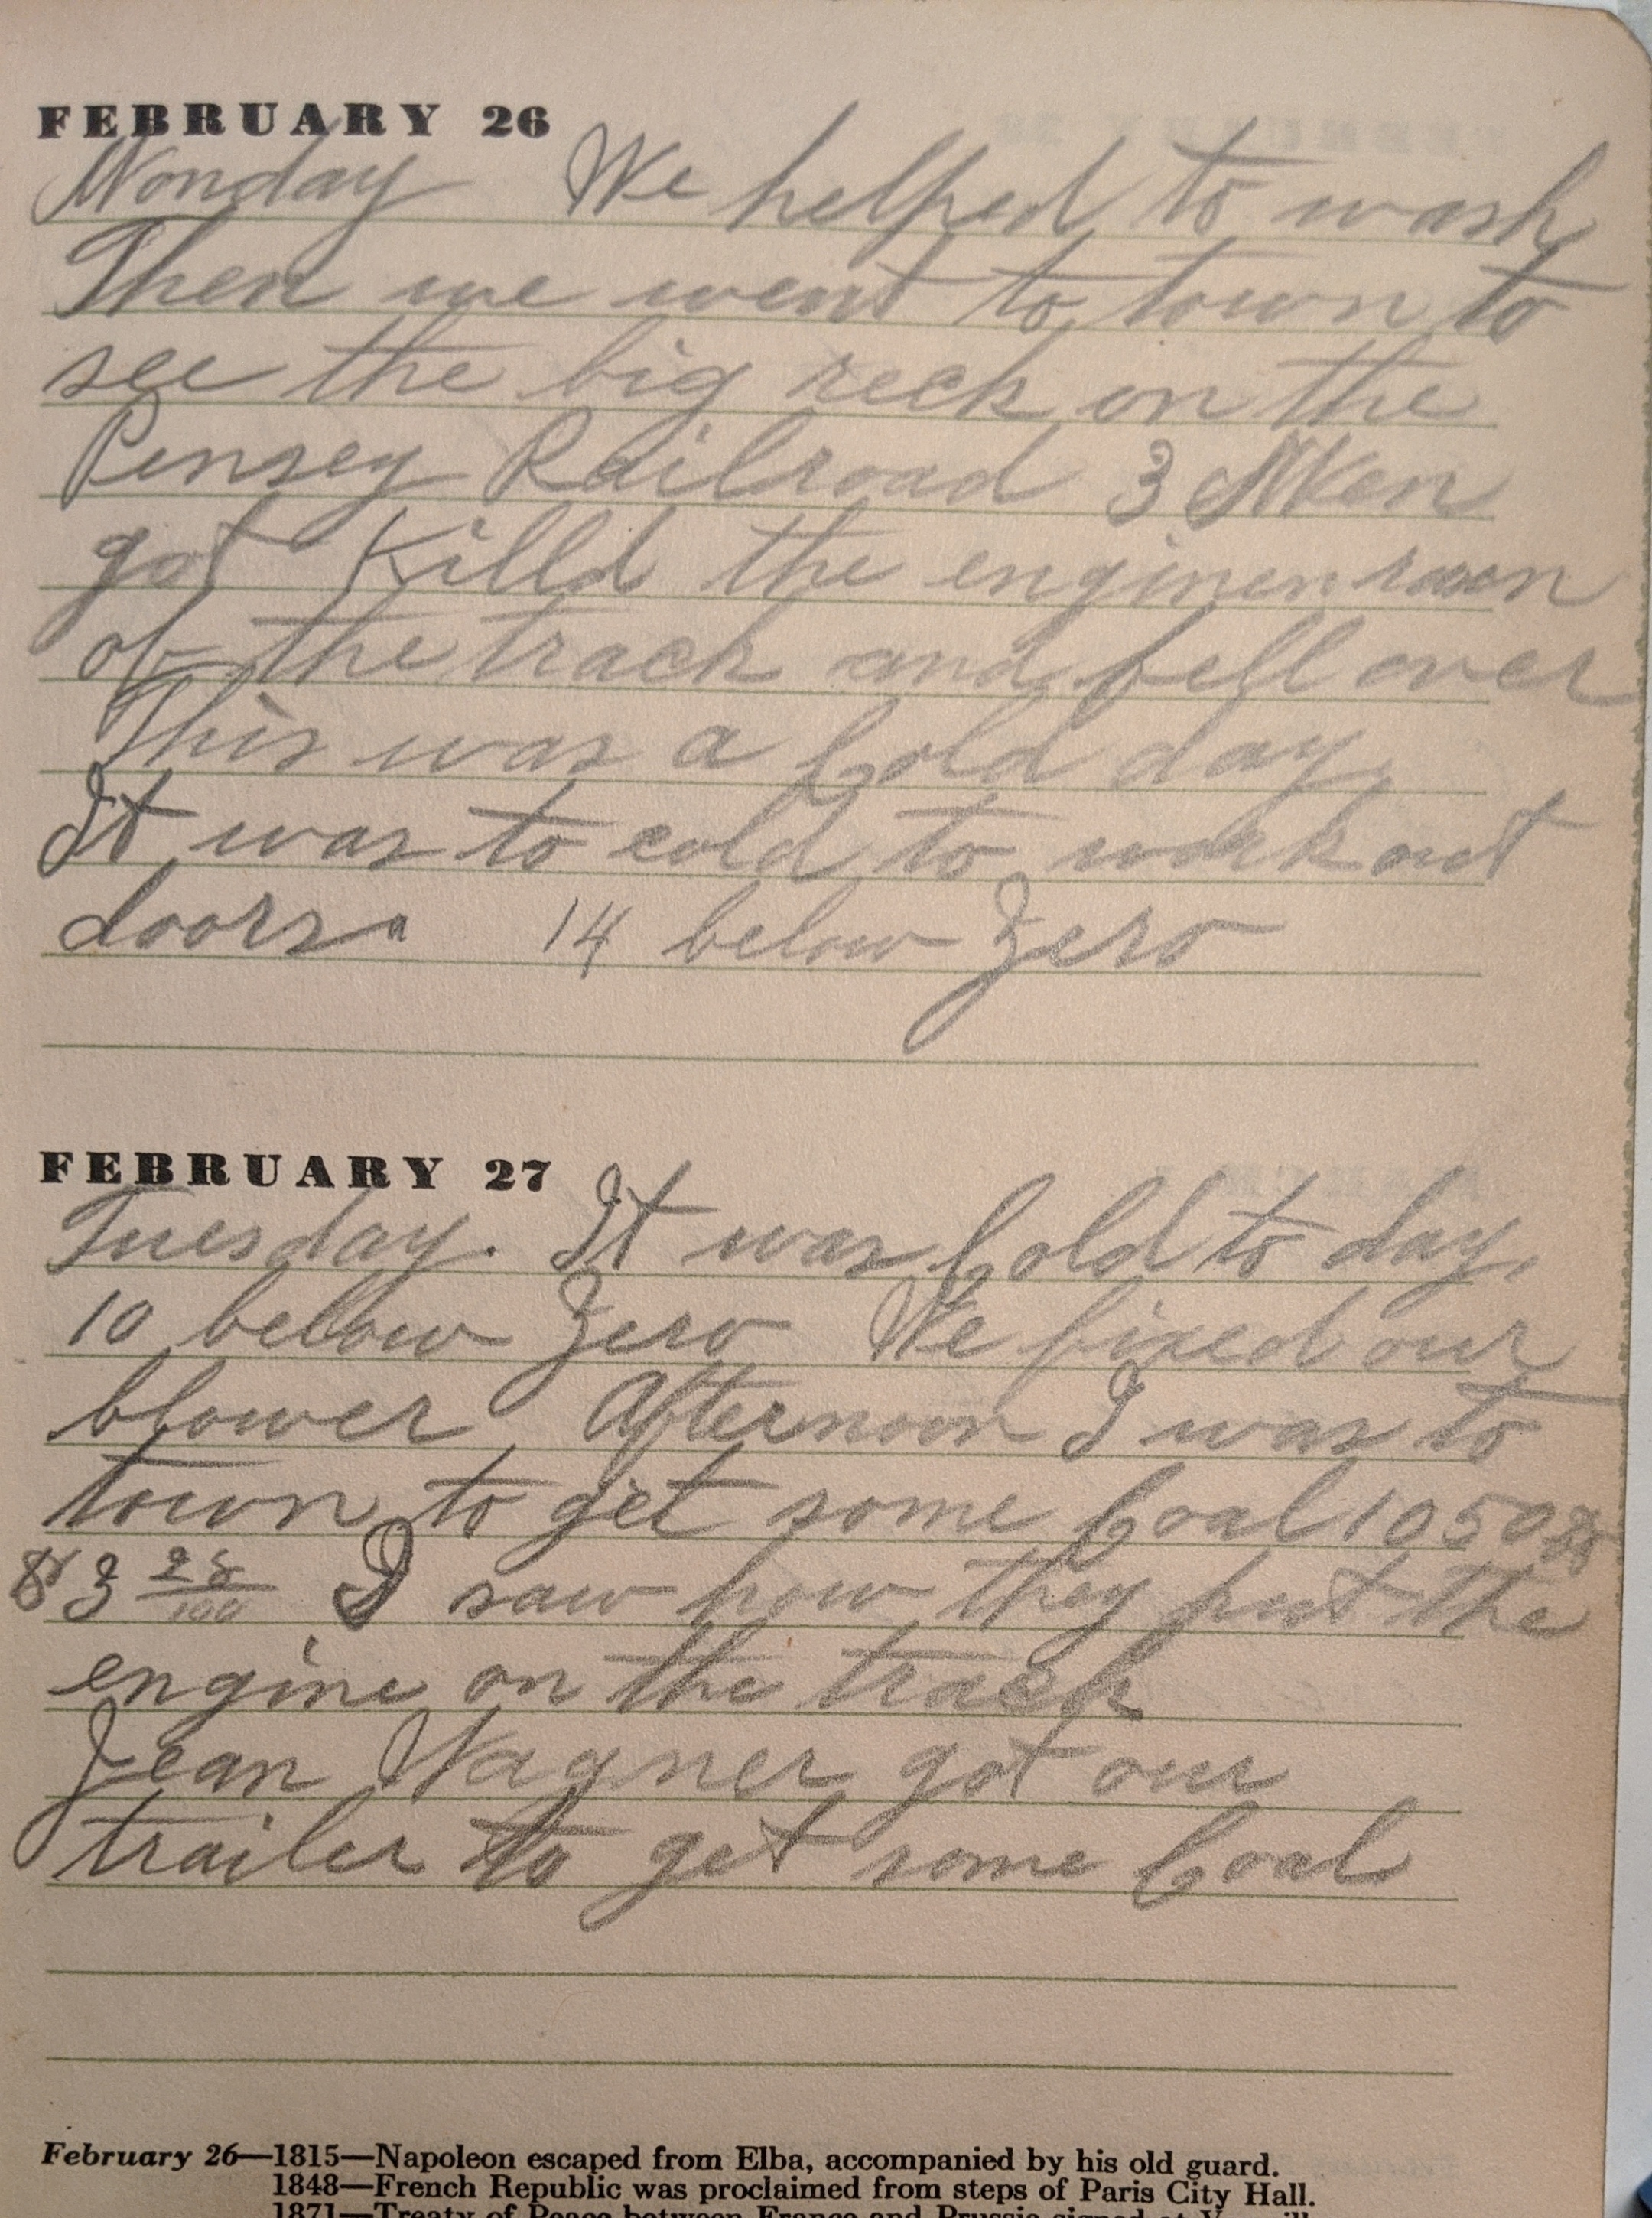 FEBRUARY 26
Monday We helped to wash
Then we went to town to
see the big reck on the
Pensey Railroad 3 Men
got Killd the enginen raen
of the track and fell over
This was a Cold day,
It was to cold to work out
doors. 14 below Zero
FEBRUARY 27
Tuesday. It was Cold to day,
10 below Zero We fixed our
blower, Afternoon I was to
town to get some Coal 1050
$3 28/100 I saw how they put the
engine on the track
Jean Wagner got our
trailer to get some Coal
February 26—1815—Napoleon escaped from Elba, accompanied by his old guard.
1848—French Republic was proclaimed from steps of Paris City Hall.
1871—Treaty of Peace between France and Prussia signed at